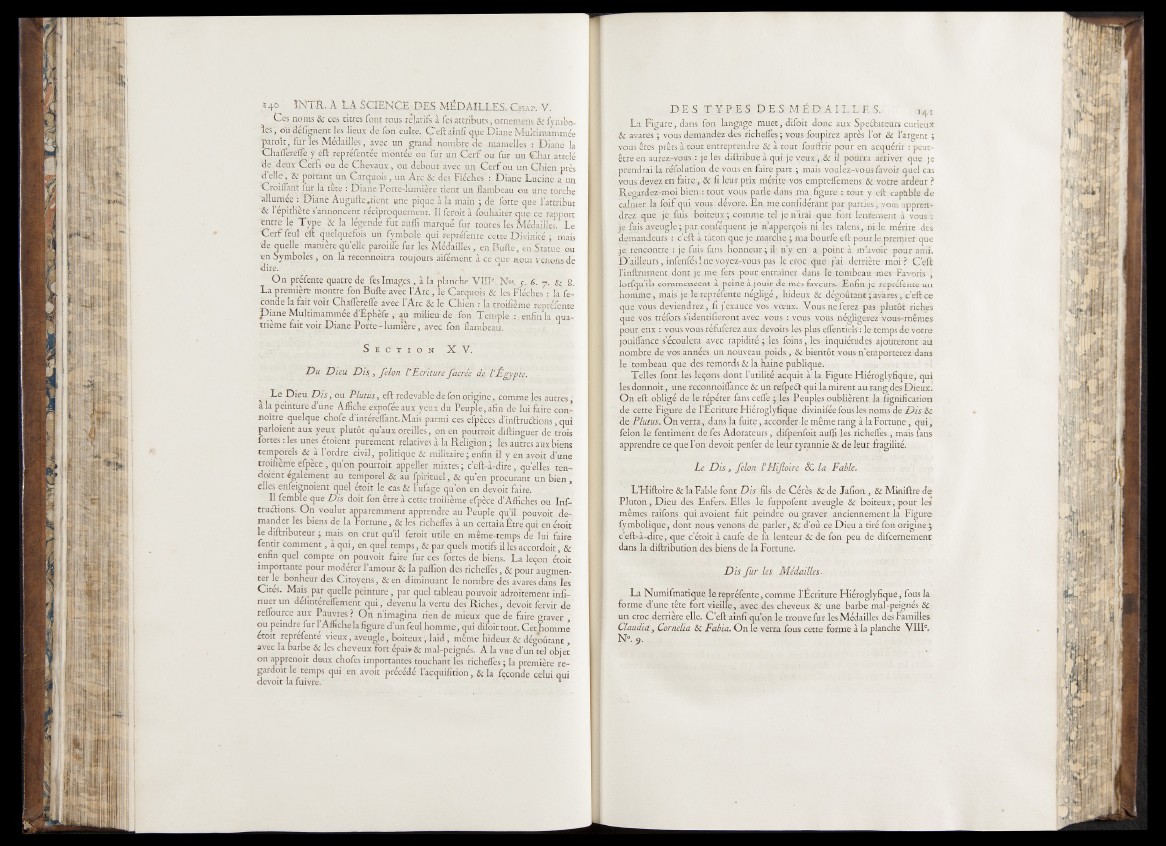 140 INTR. A LA SCIENCE DES MÉDAILLES. CHAP. V.
Ces noms & ces titres sont tous rélatifs à ses attributs, ornemens & symbo-
les, ou désignent les lieux de son culte. C'est ainsi que Diane Multimammée
paroît, sur les Médailles, avec un grand nombre de mamelles : Diane la
Chasseresse y est représentée montée ou sur un Cerf ou sur un Char attelé
de deux Cerfs ou de Chevaux, ou debout avec un Cerf ou un Chien près
d'elle, & portant un Carquois, un Arc & des Fléches : Diane Lucine a un
Croissant sur la tête : Diane Porte-lumière tient un flambeau ou une torche
allumée : Diane Auguste tient une pique à la main ; de sorte que l'attribut
& l'épithète s'annoncent réciproquement. Il seroit à souhaiter que ce rapport
entre le Type & la légende fut aussi marqué sur toutes les Médailles. Le
Cerf seul est quelquefois un symbole qui représente cette Divinité ; mais
de quelle manière qu'elle paroisse sur les Médailles, en Buste, en Statue ou
en Symboles, on la reconnoîtra toujours aisément à ce que nous venons de
dire.
On présente quatre de ses Images, à la planche VIIIe. Nos. 5. 6. 7. & 8.
La première montre son Buste avec l'Arc, le Carquois & les Fléches : la se-
conde la fait voir Chasseresse avec l'Arc & le Chien : la troisième représente
Diane Multimammée d'Ephèse, au milieu de son Temple : enfin la qua-
trième fait voir Diane Porte-lumière, avec son flambeau.
SECTION XV.
Du Dieu Dis, selon l'Ecriture sacrée de l'Égypte.
Le Dieu Dis, ou Plutus, est redevable de son origine, comme les autres,
à la peinture d'une Affiche exposée aux yeux du Peuple, afin de lui faire con-
noître quelque chose d'intéressant. Mais parmi ces espèces d'instructions, qui
parloient aux yeux plutôt qu'aux oreilles, on en pourroit distinguer de trois
sortes : les unes étoient purement relatives à la Religion ; les autres aux biens
temporels & à l'ordre civil, politique & militaire ; enfin il y en avoit d'une
troisième espèce, qu'on pourroit appeller mixtes ; c'est-à-dire, qu'elles ten-
doient également au temporel & au spirituel, & qu'en procurant un bien,
elles enseignoient quel étoit le cas & l'usage qu'on en devoit faire.
Il semble que Dis doit son être à cette troisième espèce d'Affiches ou Ins-
tructions. On voulut apparemment apprendre au Peuple qu'il pouvoit de-
mander les biens de la Fortune, & les richesses à un certain Être qui en étoit
le distributeur ; mais on crut qu'il seroit utile en même-temps de lui faire
sentir comment, à qui, en quel temps, & par quels motifs il les accordoit, &
enfin quel compte on pouvoit faire sur ces sortes de biens. La leçon étoit
importante pour modérer l'amour & la passion des richesses, & pour augmen-
ter le bonheur des Citoyens, & en diminuant le nombre des avares dans les
Cités. Mais par quelle peinture, par quel tableau pouvoit adroitement insi-
nuer un désintéressement qui, devenu la vertu des Riches, devoit servir de
ressource aux Pauvres ? On n'imagina rien de mieux que de faire graver,
ou peindre sur l'Affiche la figure d'un seul homme, qui disoit tout. Cet homme
étoit représenté vieux, aveugle, boiteux, laid, même hideux & dégoûtant,
avec la barbe & les cheveux fort épais & mal-peignés. A la vue d'un tel objet
on apprenoit deux choses importantes touchant les richesses ; la première re-
gardoit le temps qui en avoit précédé l'acquisition, & la seconde celui qui
devoit la suivre.
DES TYPES DES MÉDAILLES. 141
La Figure, dans son langage muet, disoit donc aux Spectateurs curieux
& avares ; vous demandez des richesses ; vous soupirez après l'or & l'argent ;
vous êtes prêts à tout entreprendre & à tout souffrir pour en acquérir : peut-
être en aurez-vous : je les distribue à qui je veux, & il pourra arriver que je
prendrai la résolution de vous en faire part ; mais voulez-vous savoir quel cas
vous devez en faire, & si leur prix mérite vos empressemens & votre ardeur ?
Regardez-moi bien : tout vous parle dans ma figure : tout y est capable de
calmer la soif qui vous dévore. En me considérant par parties, vous appren-
drez que je suis boiteux ; comme tel je n'irai que fort lentement à vous :
je suis aveugle ; par conséquent je n'apperçois ni les talens, ni le mérite des
demandeurs : c'est à tâton que je marche ; ma bourse est pour le premier que
je rencontre : je suis sans honneur ; il n'y en a point à m'avoir pour ami.
D'ailleurs, insensés ! ne voyez-vous pas le croc que j'ai derrière moi ? C'est
l'instrument dont je me sers pour entraîner dans le tombeau mes Favoris,
lorsqu'ils commencent à peine à jouir de mes faveurs. Enfin je représente un
homme, mais je le représente négligé, hideux & dégoûtant ; avares, c'est ce
que vous deviendrez, si j'exauce vos vœux. Vous ne serez pas plutôt riches
que vos trésors s'identifieront avec vous : vous vous négligerez vous-mêmes
pour eux : vous vous réfuserez aux devoirs les plus essentiels : le temps de votre
jouissance s'écoulera avec rapidité ; les soins, les inquiétudes ajouteront au
nombre de vos années un nouveau poids, & bientôt vous n'emporterez dans
le tombeau que des remords & la haine publique.
Telles sont les leçons dont l'utilité acquit à la Figure Hiéroglyfique, qui
les donnoit, une reconnoissance & un respect qui la mirent au rang des Dieux.
On est obligé de le répéter sans cesse ; les Peuples oublièrent la signification
de cette Figure de l'Écriture Hiéroglyfique divinisée sous les noms de Dis &
de Plutus. On verra, dans la suite, accorder le même rang à la Fortune, qui,
selon le sentiment de ses Adorateurs, dispensoit aussi les richesses, mais sans
apprendre ce que l'on devoit penser de leur tyrannie & de leur fragilité.
Le Dis, selon l'Histoire & la Fable.
L'Histoire & la Fable font Dis fils de Cérès & de Jasion, & Ministre de
Pluton, Dieu des Enfers. Elles le supposent aveugle & boiteux, pour les
mêmes raisons qui avoient fait peindre ou graver anciennement la Figure
symbolique, dont nous venons de parler, & d'où ce Dieu a tiré son origine ;
c'est-à-dire, que c'étoit à cause de sa lenteur & de son peu de discernement
dans la distribution des biens de la Fortune.
Dis sur les Médailles.
La Numismatique le représente, comme l'Écriture Hiéroglyfique, sous la
forme d'une tête fort vieille, avec des cheveux & une barbe mal-peignés &
un croc derrière elle. C'est ainsi qu'on le trouve sur les Médailles des Familles
Claudia, Cornelia & Fabia. On le verra sous cette forme à la planche VIIIe.
No. 9.